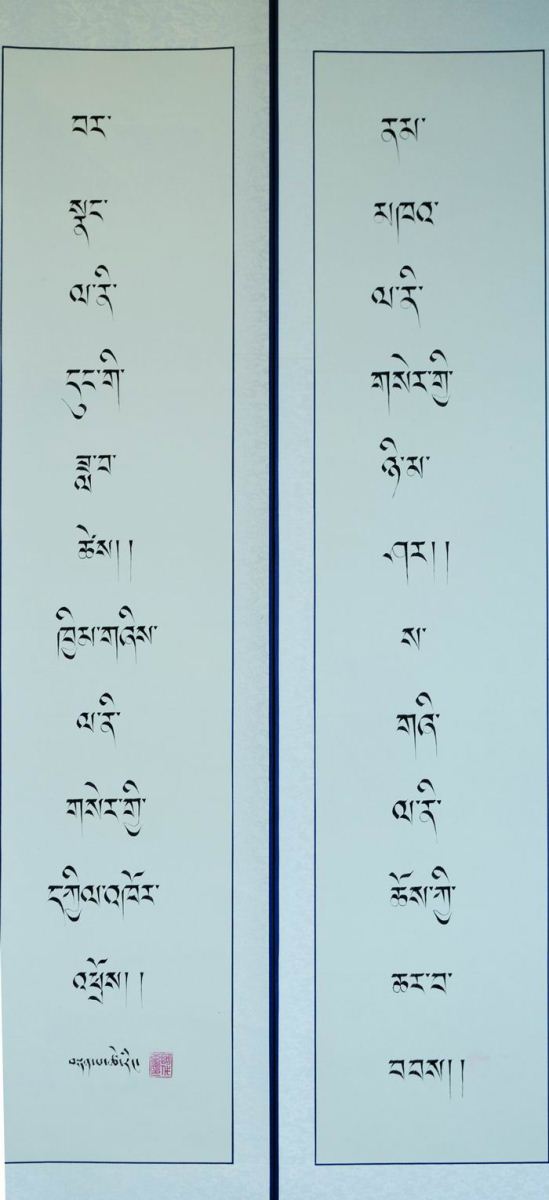 ནམ་
མཁའ་
ལ་ནི་
གསེར་གྱི་
ཉི་མ་
ཤར།།
ས་
གཞི་
ལ་ནི་
ཆོས་ཀྱི་
ཆར་བ་
བབས།།
བར་
སྣང་
ལ་ནི་
དུང་གི་
ཟླ་བ་
ཚེས།།
ཁྱིམ་གཞིས་
ལ་ནི་
གསེར་གྱི་
དཀྱིལ་འཁོར་
འཕྲོས།།